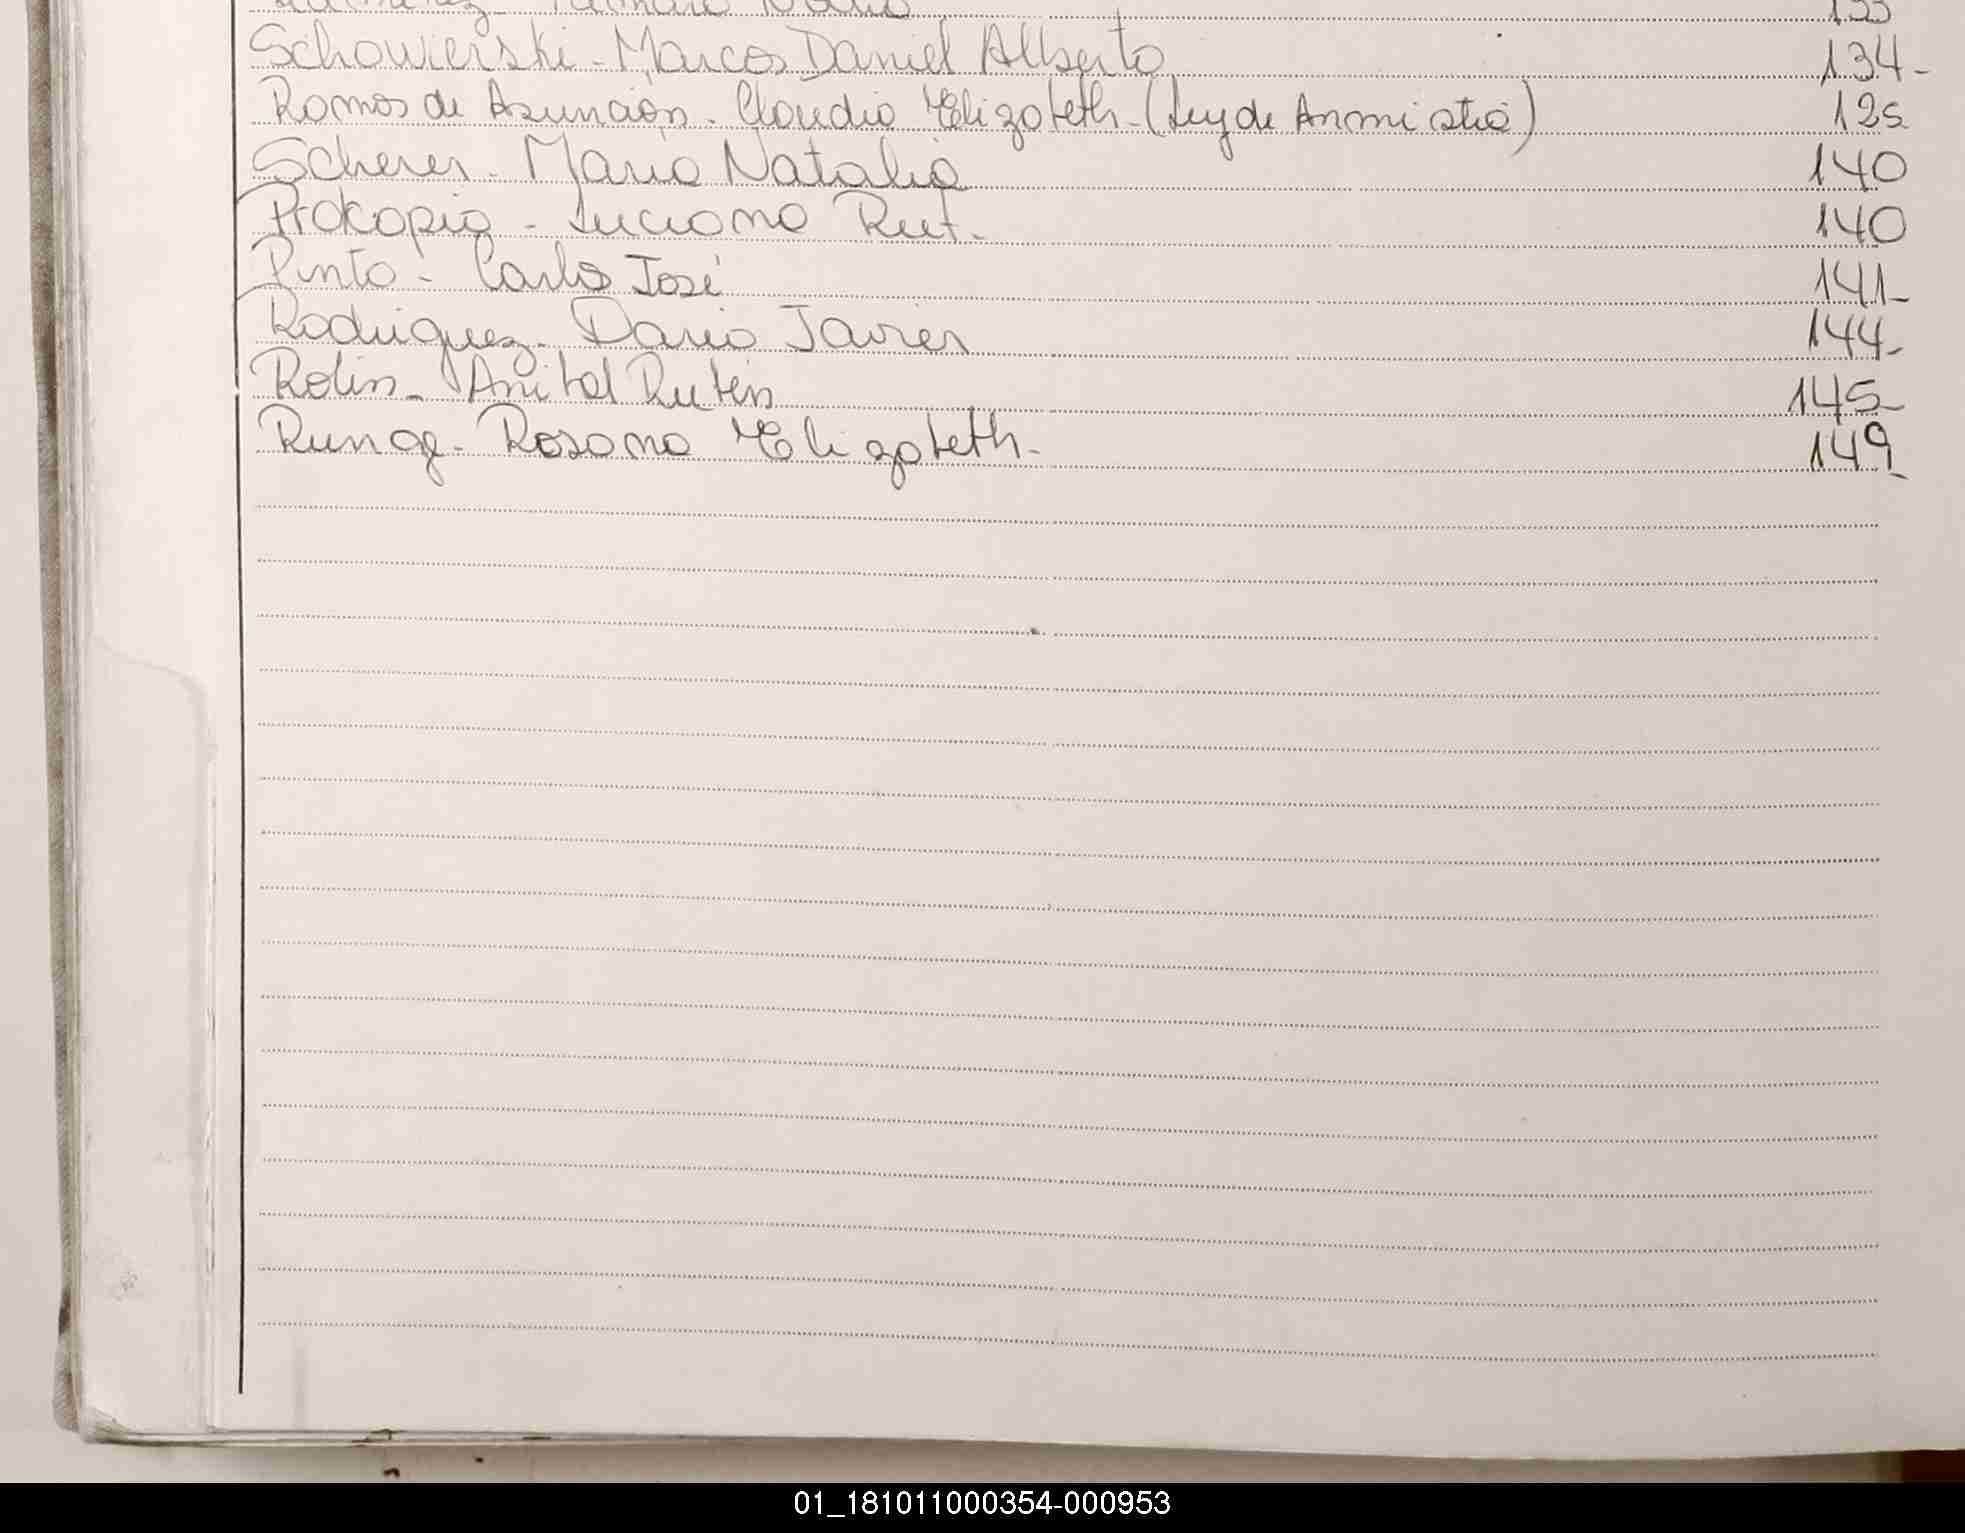 133
Schowierski - Marcos Daniel Alberto 134-
Ramos de Asunción - Claudia Elizabeth - (Ley de Anmistia) 125
Scherer - Maria Natalia 140
Prokopio - Luciana Rut. 140
Pinto - Carlos José 141-
Rodriguez - Dario Javier 144-
Rolin - Anibal Ruben 145-
Runge - Rosana Elizabeth - 149-
01_181011000354-000953